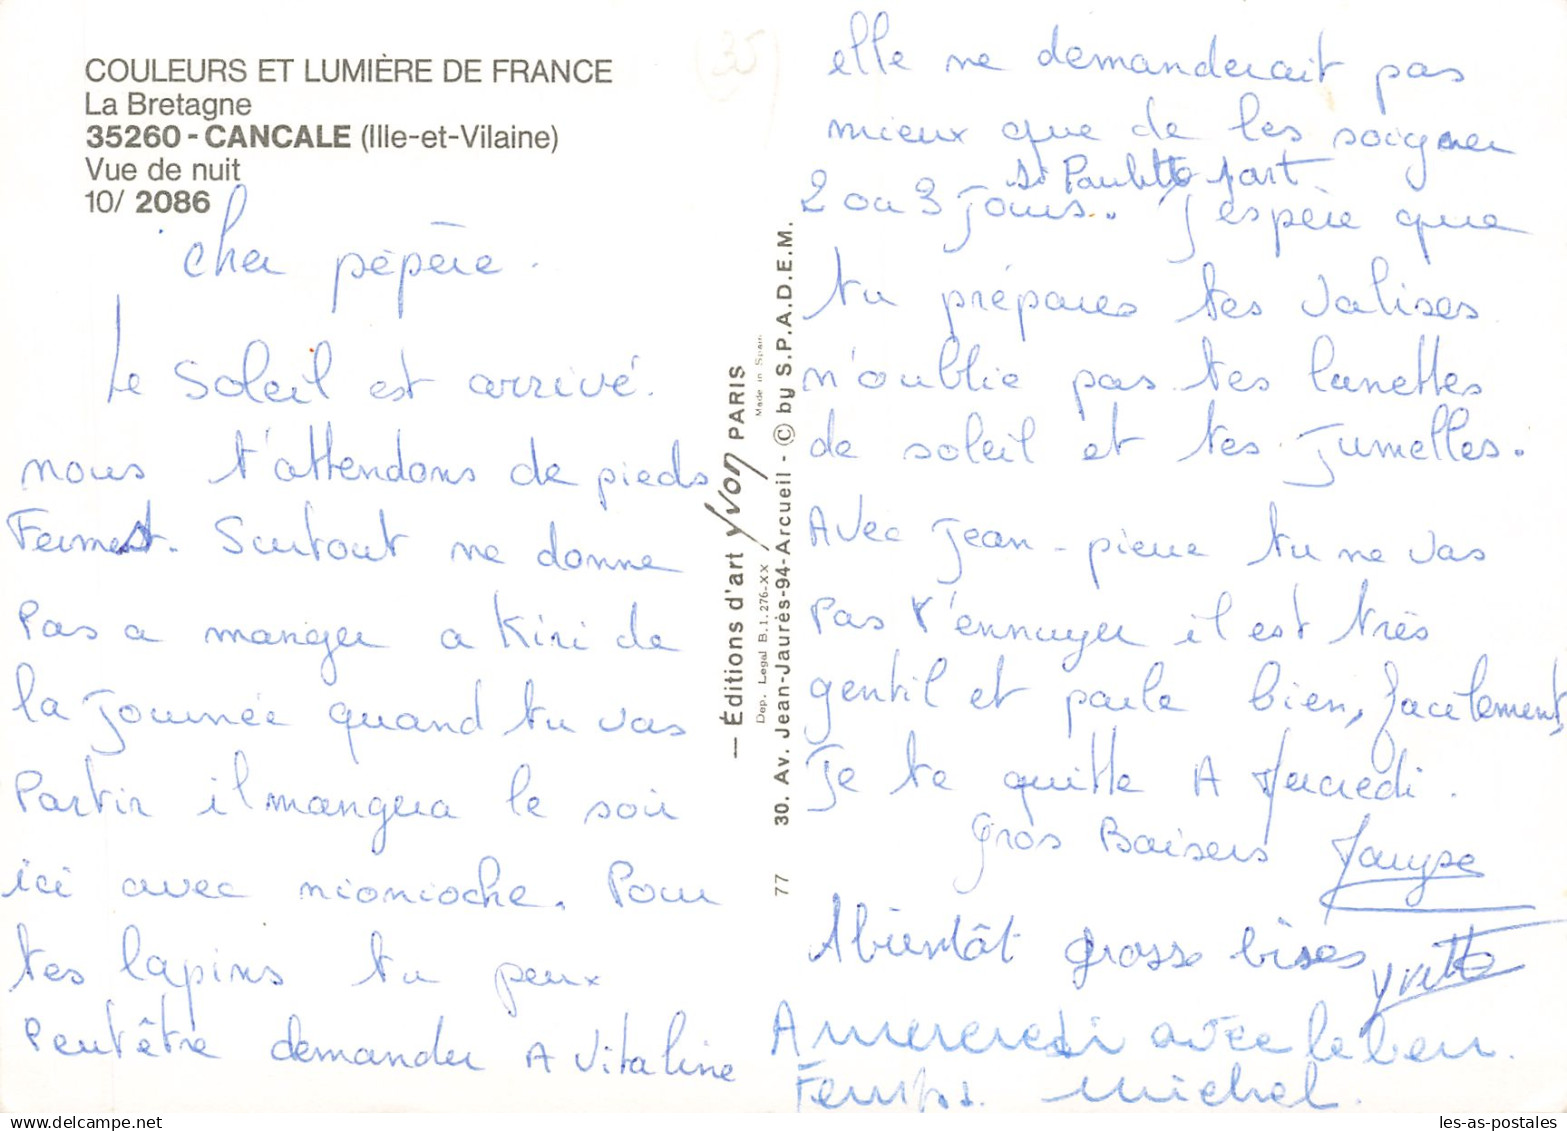 COULEURS ET LUMIÈRE DE FRANCE
La Bretagne
35260 - CANCALE (Ille-et-Vilaine)
Vue de nuit
10/ 2086
cher pépère.
Le Soleil est arrivé.
nous t'attendons de pieds
Fermest. Surtout ne donne
Pas a manger a Kiri de
la journée quand tu vas
Partir il mangera le soir
ici avec nionioche. Pour
tes lapins tu peux
Peut être demander A Vitaline
— Éditions d'art yvon PARIS
Dep. Legal B. 1. 276-XX
Made in Spain
30. Av. Jean-Jaurès-94-Arcueil - © by S.P.A.D.E.M.
77
(35)
elle ne demanderait pas
mieux que de les soigner
si Paulette part
2 ou 3 jours. J'espère que
tu prépares tes valises
n'oublie pas tes lunettes
de soleil et tes jumelles.
Avec Jean-pierre tu ne vas
Pas t'ennuyer il est très
gentil et parle bien, facilement,
Je te quitte A Mercredi.
Gros Baisers
Abientôt grosse bises yvette
A mercredi avec le beau
Temps. Michel.
les-as-postales